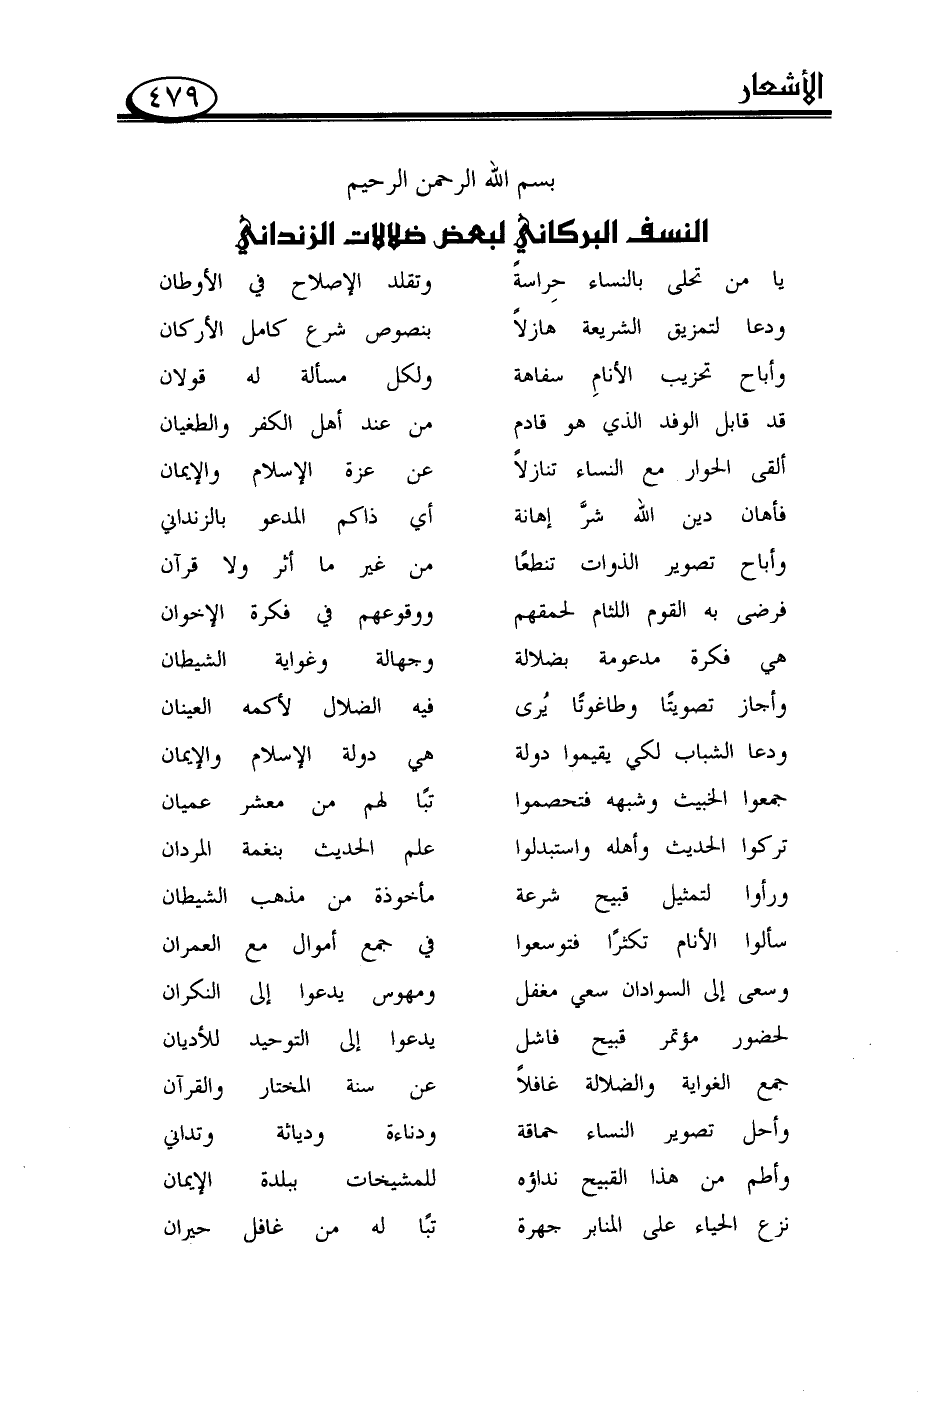 الأشعار
٤٧٩
بسم الله الرحمن الرحيم
النسف البركاني لبعض ضلالات الزنداني
يا من تحلى بالنساء حِراسةً وتقلد الإصلاح في الأوطان
ودعا لتمزيق الشريعة هازلاً بنصوص شرع كامل الأركان
وأباح تحزيب الأنامِ سفاهة ولكل مسألة له قولان
قد قابل الوفد الذي هو قادم من عند أهل الكفر والطغيان
ألقى الحوار مع النساء تنازلاً عن عزة الإسلام والإيمان
فأهان دين الله شرَّ إهانة أي ذاكم المدعو بالزنداني
وأباح تصوير الذوات تنطعًا من غير ما أثر ولا قرآن
فرضى به القوم اللثام لحمقهم ووقوعهم في فكرة الإخوان
هي فكرة مدعومة بضلالة وجهالة وغواية الشيطان
وأجاز تصويتًا وطاغوتًا يُرى فيه الضلال لأكمه العينان
ودعا الشباب لكي يقيموا دولة هي دولة الإسلام والإيمان
جمعوا الخبيث وشبهه فتحصموا تبًا لهم من معشر عميان
تركوا الحديث وأهله واستبدلوا علم الحديث بنغمة المردان
ورأوا لتمثيل قبيح شرعة مأخوذة من مذهب الشيطان
سألوا الأنام تكثرًا فتوسعوا في جمع أموال مع العمران
وسعى إلى السوادان سعي مغفل ومهوس يدعوا إلى النكران
لحضور مؤتمر قبيح فاشل يدعوا إلى التوحيد للأديان
جمع الغواية والضلالة غافلاً عن سنة المختار والقرآن
وأحل تصوير النساء حماقة ودناءة ودياثة وتداني
وأطم من هذا القبيح نداؤه للمشيخات ببلدة الإيمان
نزع الحياء على المنابر جهرة تبًا له من غافل حيران